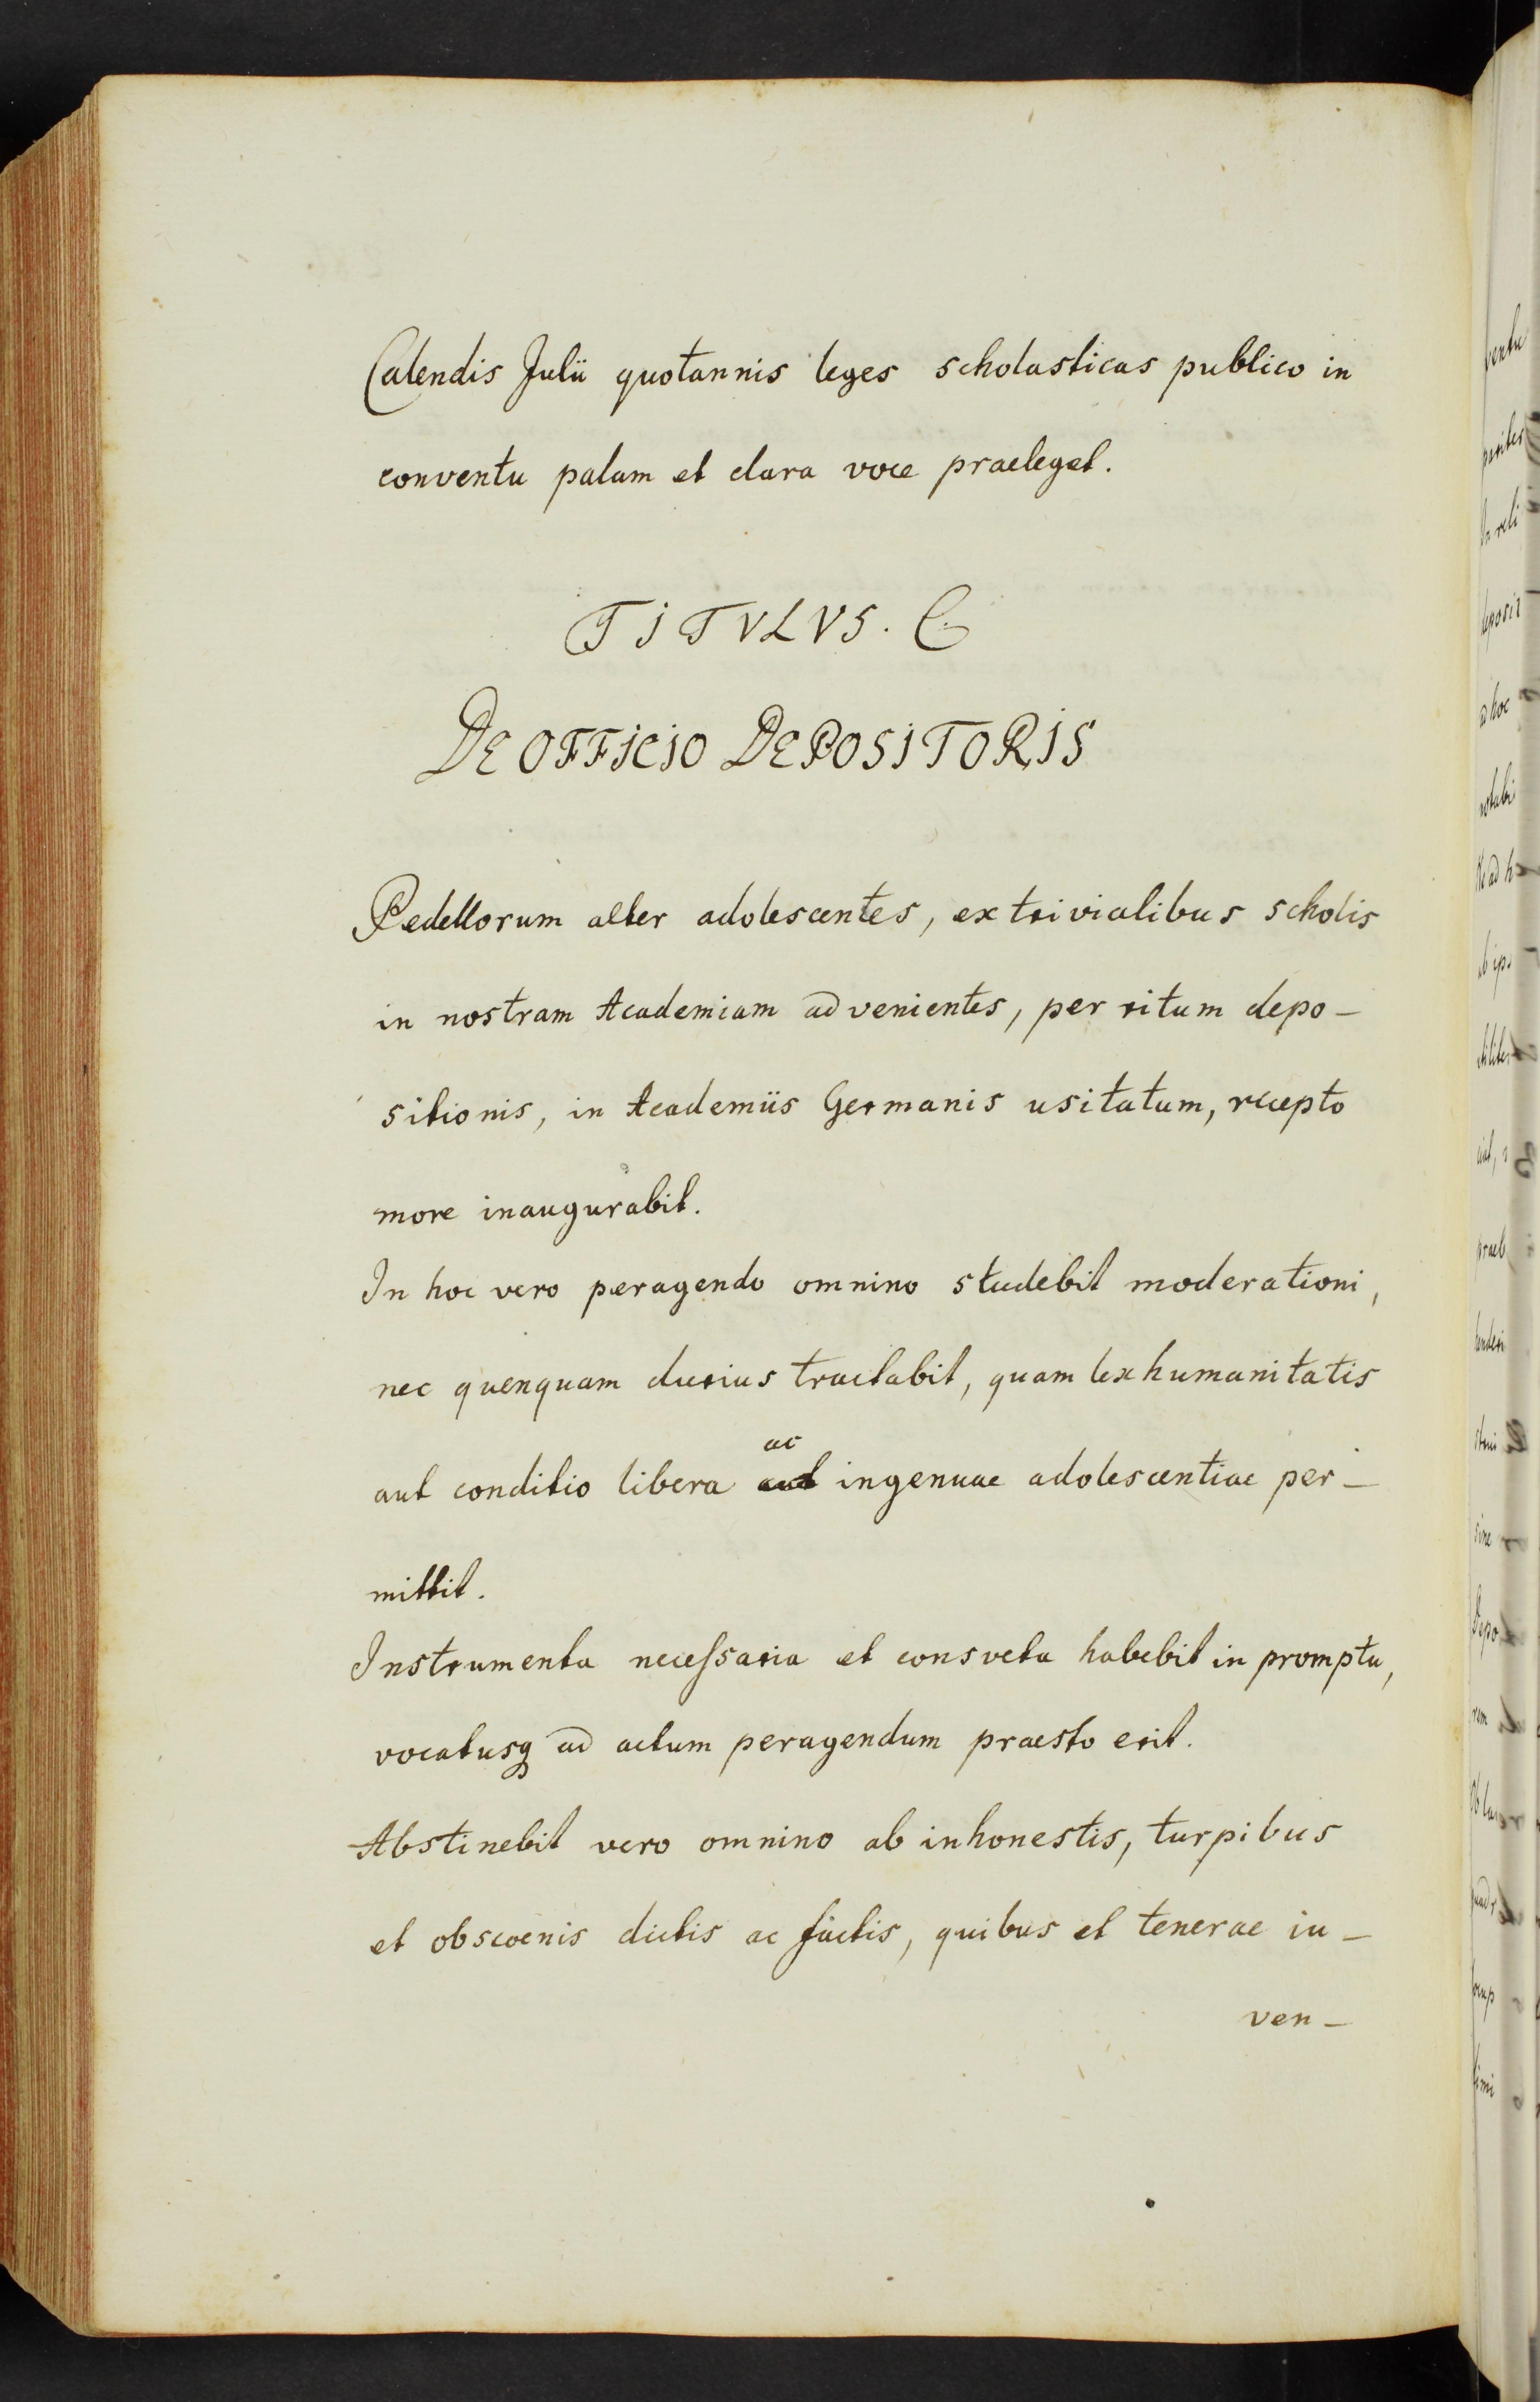 Calendis Julii quotannis leges scholasticas publico in
conventu palam et clara voce praeleget.
TITVLVS. C.
DE OFFICIO DEPOSITORIS
Pedellorum alter adolescentes, ex trivialibus scholis
in nostram Academiam advenientes, per ritum depo-
sitionis, in Academiis Germanis usitatum, recepto
more inaugurabit.
In hoc vero peragendo omnino studebit moderationi,
nec quenquam durius tractabit, quam lex humanitatis
ac
aut conditio libera aut ingenuae adolescentiae per-
mittit.
Instrumenta necessaria et consveta habebit in promptu,
vocatusq ad actum peragendum praesto erit.
Abstinebit vero omnino ab inhonestis, turpibus
et obscoenis dictis ac factis, quibus et tenerae iu-
ven-